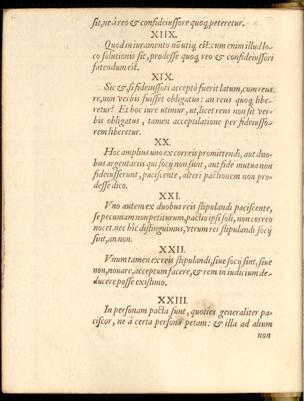 sit, ne à reo & confideiussore quoq; peteretur.
XIIX.
Quod in iuramento nō utiq; est: cum enim illud lo-
co solutionis sit, prodesse quoq; reo & confideiussori
fatendum est.
XIX.
Sic &, si fideiussori acceptò fuerit latum, cum reus
re, non verbis fuisset obligatus: an reus quoq; libe-
retur? Et hoc iure utimur, ut, licet reus non sit ver-
bis obligatus, tamen acceptilatione per fideiusso-
rem liberetur.
XX.
Hoc amplius uno ex correis promittendi, aut duo-
bus argentariis qui socij non sunt, aut fide mutua non
fideiusserunt, paciscente, alteri pactionem non pro-
desse dico.
XXI.
Vno autem ex duobus reis stipulandi paciscente,
se pecuniam non petiturum, pactio ipsi soli, non correo
nocet. nec hîc distinguimus, vtrum rei stipulandi socij
sint, an non.
XXII.
Vnum tamen ex reis stipulandi, siue socij sint, siue
non, nouare, acceptum facere, & rem in iudicium de-
ducere posse existimo.
XXIII.
In personam pacta sunt, quoties generaliter pa-
ciscor, ne à certa persona petam: & illa ad alium
non